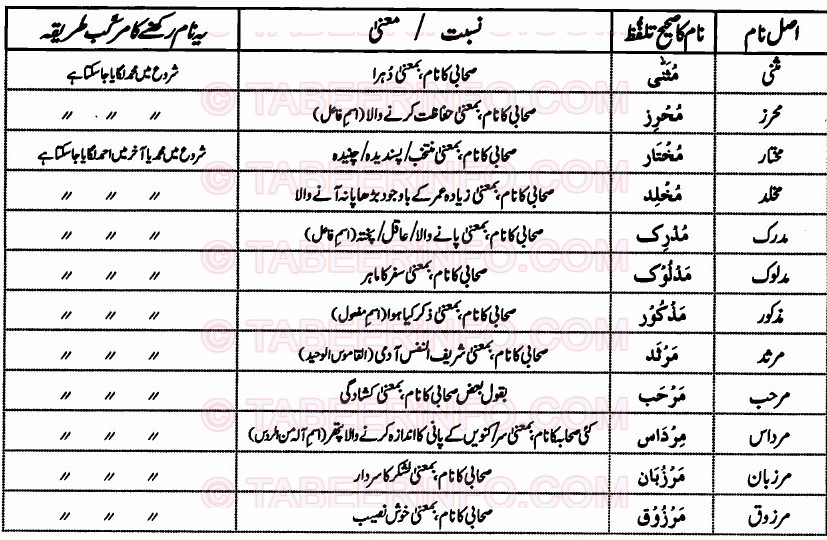 اصل نام | نام کا صحیح تلفّظ | نسبت / معنیٰ | یہ نام رکھنے کا مرکّب طریقہ
مثنی | مُثَنّٰی | صحابی کا نام، بمعنیٰ دُہرا | شروع میں محمد لگایا جاسکتا ہے
محرز | مُحْرِز | صحابی کا نام، بمعنیٰ حفاظت کرنے والا (اسمِ فاعل) | 〃 〃 〃
مختار | مُخْتَار | صحابی کا نام، بمعنیٰ منتخب/ پسندیدہ/ چنیدہ | شروع میں محمد یا آخر میں احمد لگایا جاسکتا ہے
مخلد | مُخْلِد | صحابی کا نام، بمعنیٰ زیادہ عمر کے باوجود بڑھاپا نہ آنے والا | 〃 〃 〃
مدرک | مُدْرِک | صحابی کا نام، بمعنیٰ پانے والا/ عاقل/ پختہ (اسمِ فاعل) | 〃 〃 〃
مدلوک | مَدْلُوْک | صحابی کا نام، بمعنیٰ سفر کا ماہر | 〃 〃 〃
مذکور | مَذْکُوْر | صحابی کا نام، بمعنیٰ ذکر کیا ہوا (اسمِ مفعول) | 〃 〃 〃
مرثد | مَرْثَد | صحابی کا نام، بمعنیٰ شریف النفس آدمی (القاموس الوحید) | 〃 〃 〃
مرحب | مَرْحَب | بقول بعض صحابی کا نام، بمعنیٰ کشادگی | 〃 〃 〃
مرداس | مِرْدَاس | کئی صحابہ کا نام، بمعنیٰ سر/ کنویں کے پانی کا اندازہ کرنے والا پتھر (اسمِ آلہ من الردس) | 〃 〃 〃
مرزبان | مَرْزُبَان | صحابی کا نام، بمعنیٰ لشکر کا سردار | 〃 〃 〃
مرزوق | مَرْزُوْق | صحابی کا نام، بمعنیٰ خوش نصیب | 〃 〃 〃
© TABEERINFO.COM
© TABEERINFO.COM
© TABEERINFO.COM
© TABEERINFO.COM
© TABEERINFO.COM
© TABEERINFO.COM